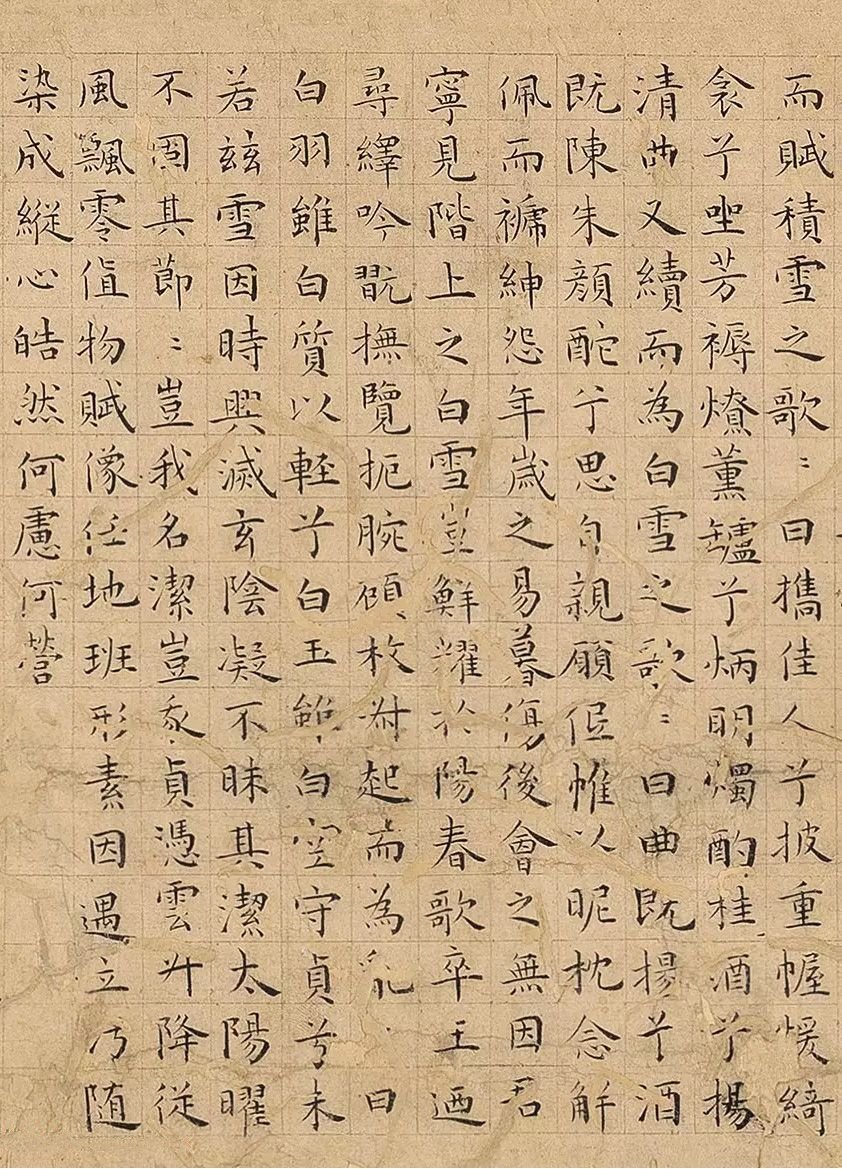 而賦積雪之歌〻曰擕佳人兮披重幄煖綺
衾兮坐芳褥燎薰鑪兮炳明燭酌桂酒兮揚
清曲又續而為白雪之歌〻曰曲既揚兮酒
既陳朱顏酡兮思自親願低帷以昵枕念解
佩而褫紳怨年歲之易暮傷後會之無因君
寧見階上之白雪豈鮮耀於陽春歌卒王迺
尋繹吟翫撫覽扼腕顧枚叔起而為亂〻曰
白羽雖白質以軽兮白玉雖白空守貞兮未
若茲雪因時興滅玄陰凝不昧其潔太陽曜
不固其節〻豈我名潔豈我貞憑雲升降從
風飄零值物賦像任地班形素因遇立乃随
染成縱心皓然何慮何營